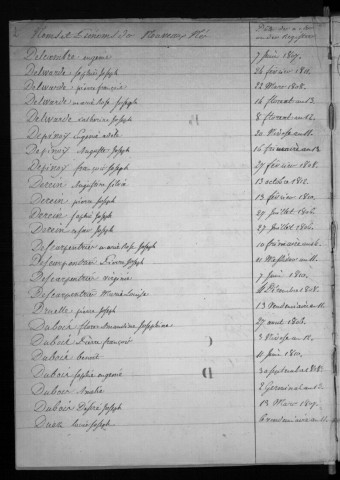 Noms et Prénoms des Nouveaux Nés
Date des
ou des Registres
Delecambre eugenie 7 Juin 1809.
Delwarde sophie Joseph 26 fevrier 1810.
Delwarde pierre françois 22 Mars 1808.
Delwarde marie Rose Joseph 16 floreal an 13.
Delwarde catherine Joseph 8 floreal an 12.
Depinoy Eugenie adele 20 Nivose an 11.
Depinoy Auguste Joseph 16 frimaire an 13
Depinoy françois Joseph 27 fevrier 1808.
Derein Augustin 13 octobre 1812.
Derein pierre Joseph 13 fevrier 1810.
Derein sophie Joseph 29 Juillet 1806.
Derein cesar Joseph 27 Juillet 1806.
Descarpentrie marie Rose Joseph 10 frimaire an 12.
Descarpentrie Pierre Joseph 21 Messidor an 11.
Descarpentrie virginie 7 Juin 1810.
Descarpentrie Marie Louise Decembre 1808.
Bruelle pierre Joseph 13 vendemiaire an 11.
Dubois flore Josephine 27 aout 1806.
Dubois Pierre françois 3 Nivose an 12.
Dubois benoit 11 Juin 1810.
Dubois sophie eugenie 30 septembre 1808.
Dubois Amelie 2 Germinal an 12.
Dubois Désiré Joseph 13 Mars 1809.
Duez Joseph 6 vendemiaire an 11.